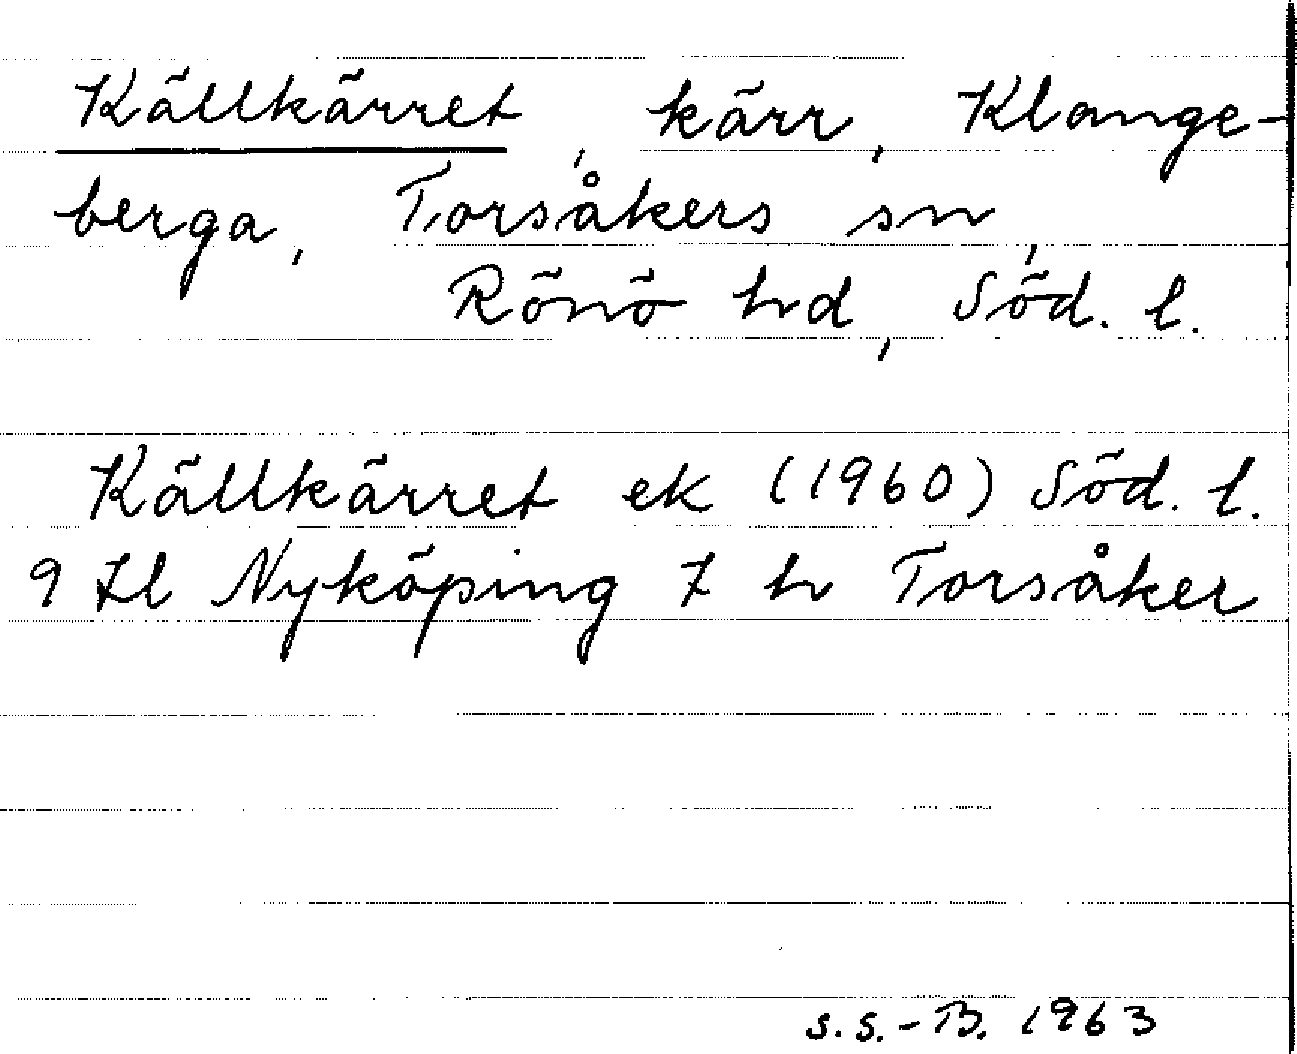 Källkärret, kärr, Klange-
berga, Torsåkers sn,
Rönö hd, Söd. l.
Källkärret ek (1960) Söd. l.
9 Il Nyköping 7 h Torsåker
S.S.-B. 1963